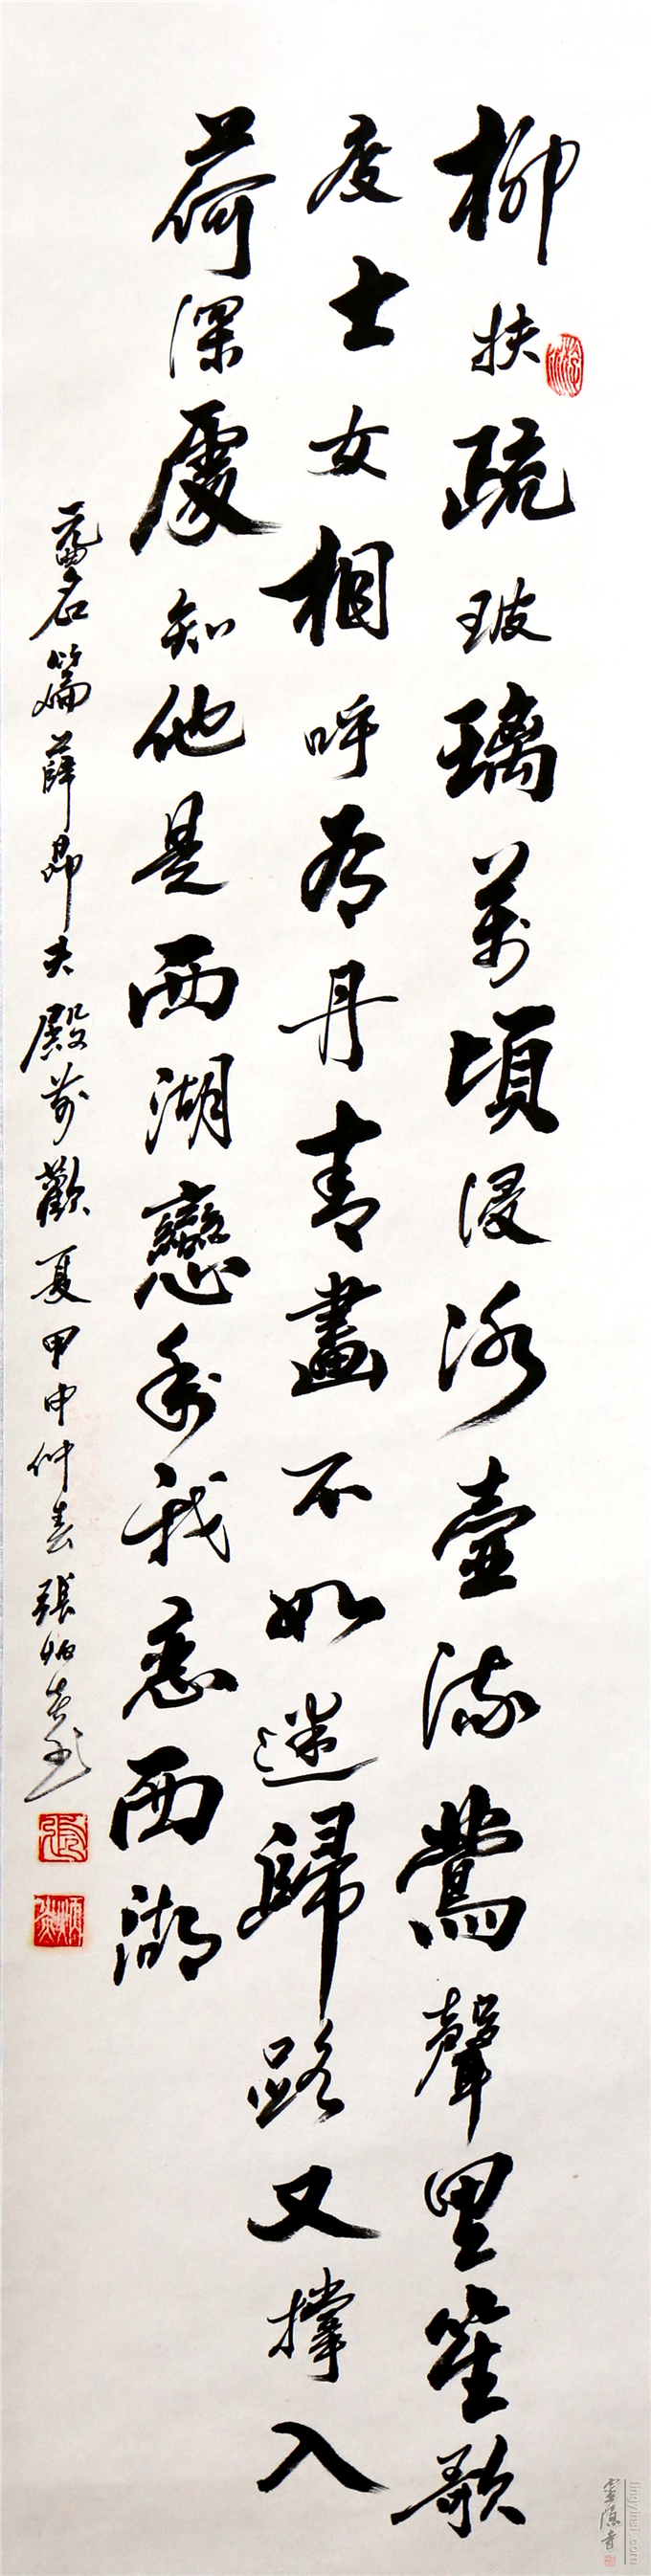 柳扶疏玻璃萬頃浸冰壺流鶯聲里笙歌
度士女相呼有丹青畫不如迷歸路又撐入
荷深處知他是西湖戀我我戀西湖
元曲名篇薛昂夫殿前歡夏甲申仲春張
lingyinsi.com